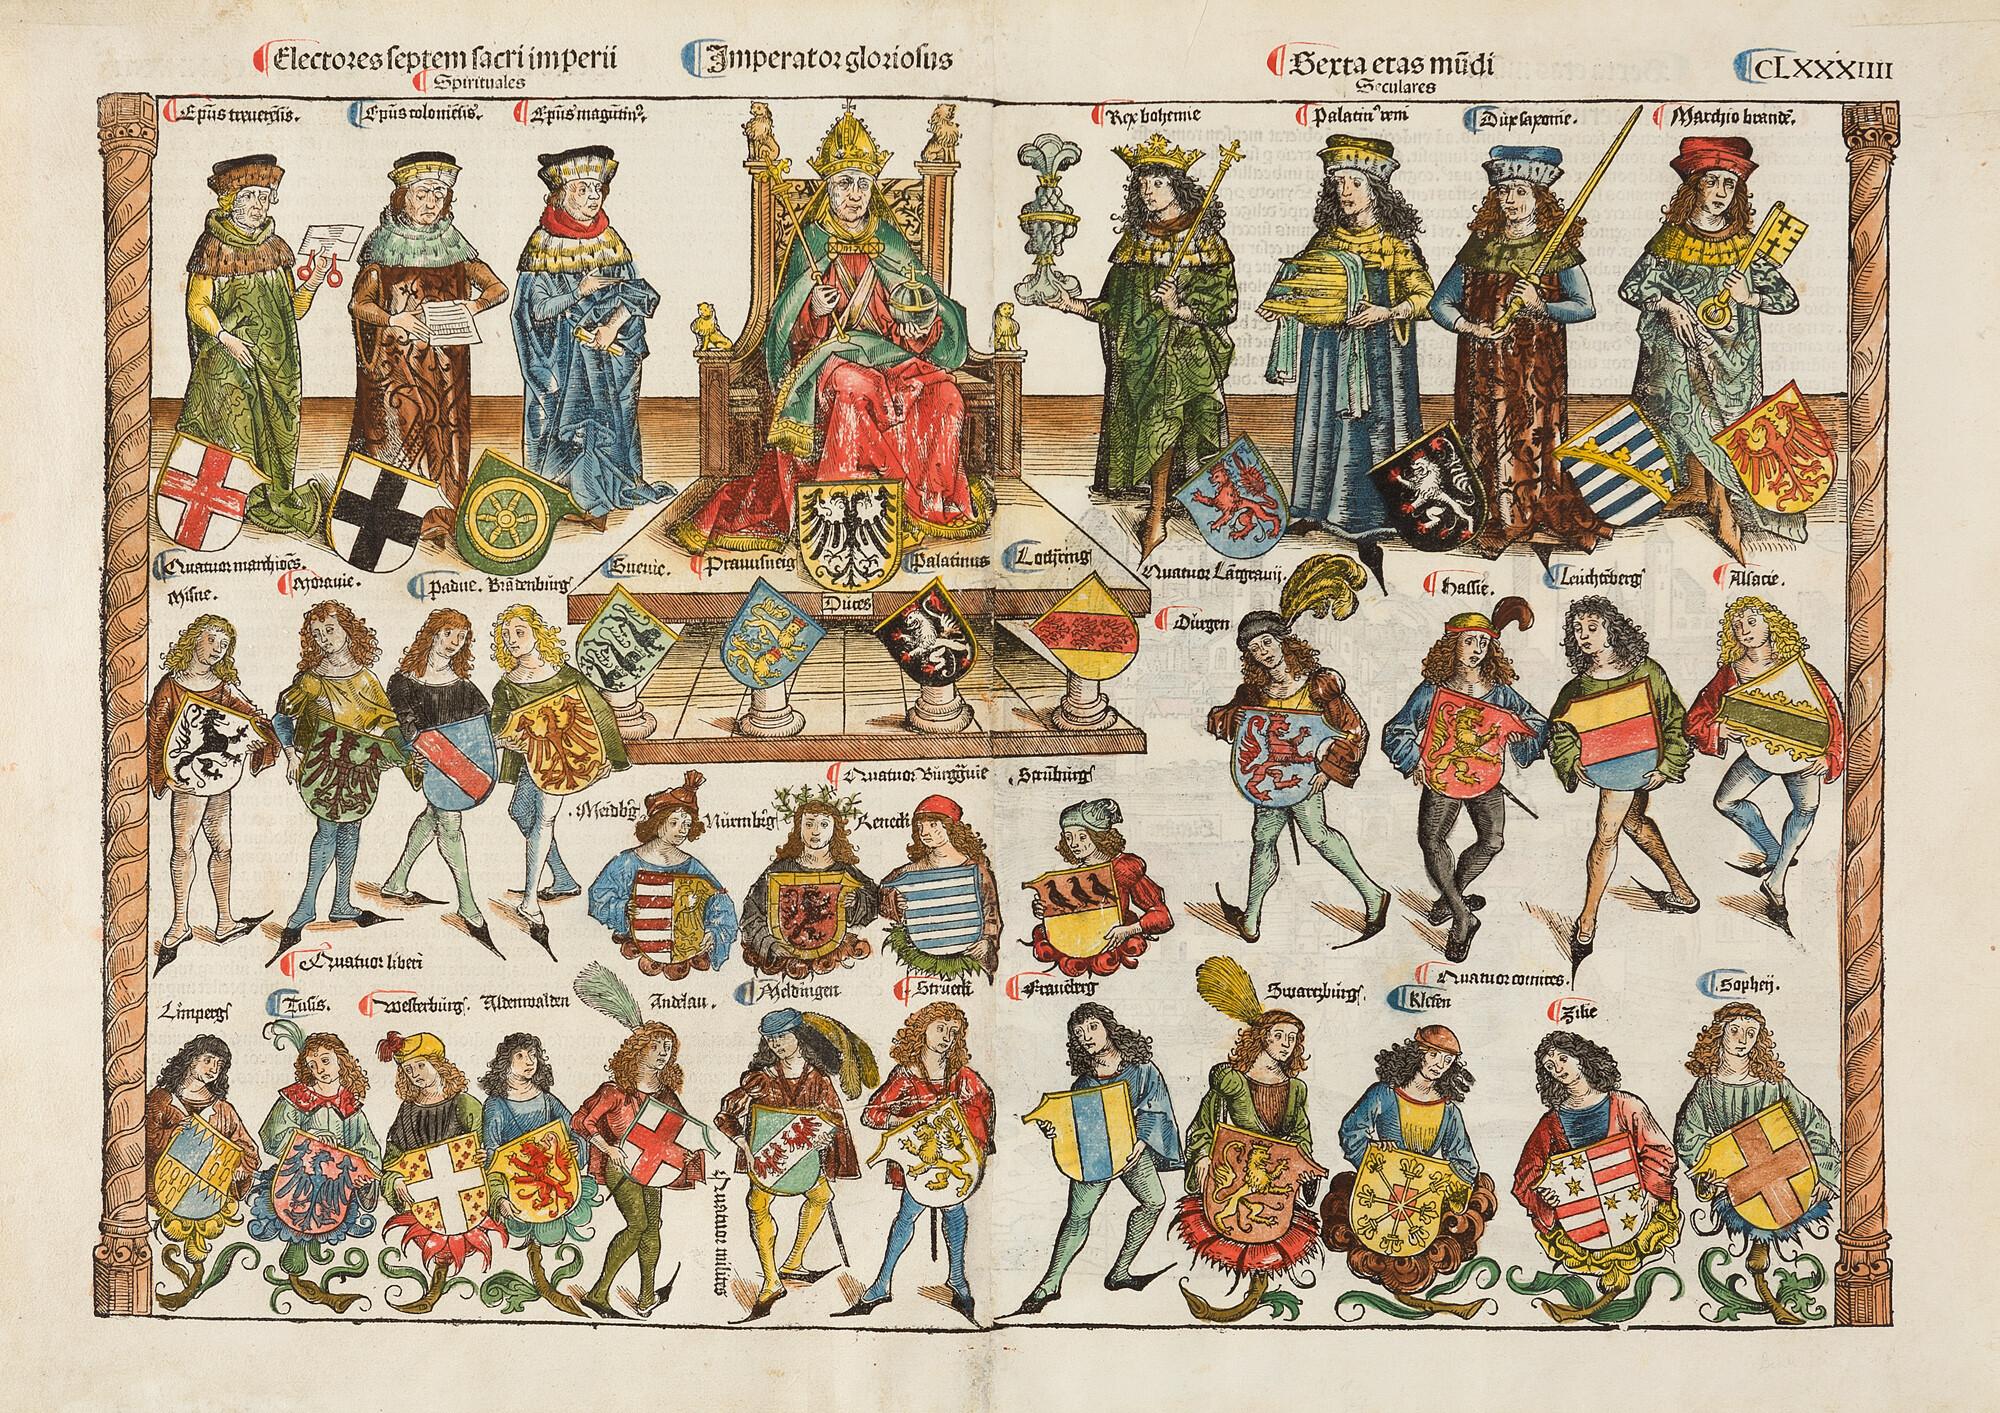 Electores septem sacri imperii
Spirituales
Imperator gloriosus
Sexta etas mūdi
Seculares
CLXXXIIII
Epūs treuerēsis.
Epūs coloniēsis.
Epūs magūtin⁹.
Rex bohemie
Palatin⁹ reni
Dux saxonie.
Marchio brandē.
Quatuor marchiōes.
Misne.
Morauie.
Padue.
Brādenburg
Sueuie.
Prauusneig
Palatinus
Lothring
Duces
Quatuor Lātgrauij.
Dūrgen
Hassie.
Leuchtēberg
Alsacie.
Quatuor Burggūie
Meidb̄g
Nürmb̄g
Reneck
Strūburg
Quatuor liberi
Limperg
Tusis.
Westerburg.
Aldenwalden
Andelau.
Meldingen
Strueck
Frauēberg
Quatuor milites
Quatuor comites.
Swartzburg.
Klefen
Zilie
Sophey.